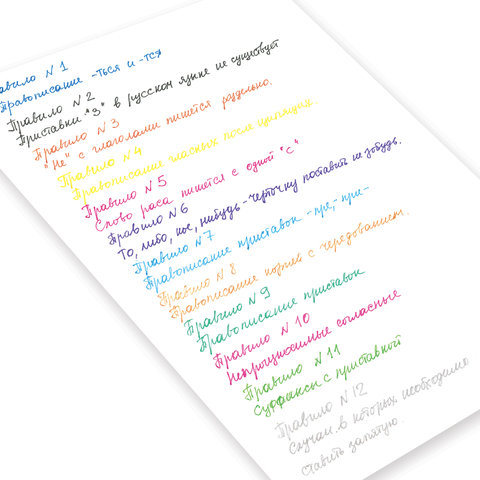 авило N 1
Правописание -ться и -тся
Правило N 2
Приставки "З" в русском языке не существует
Правило N 3
"Не" с глаголами пишется раздельно.
Правило N 4
Правописание гласных после шипящих.
Правило N 5
Слово раса пишется с одной "с"
Правило N 6
То, либо, кое, нибудь - черточку поставить не забудь.
Правило N 7
Правописание приставок - пре, - при-
Правило N 8
Правописание корней с чередованием.
Правило N 9
Правописание приставок
Правило N 10
Непроизносимые согласные
Правило N 11
Суффиксы с приставкой
Правило N 12
Случаи, в которых необходимо
ставить запятую.